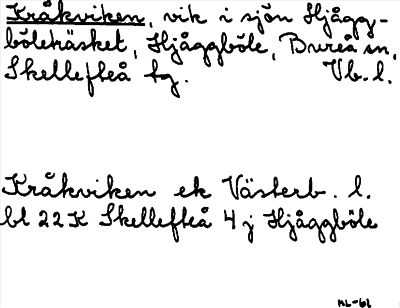 Kråkviken, vik i sjön Hjågg-
böleträsket, Hjåggböle, Bureå sn,
Skellefteå tg. Vb. l.
Kråkviken ek Västerb. l.
bl 22K Skellefteå 4 j Hjåggböle
KL-61